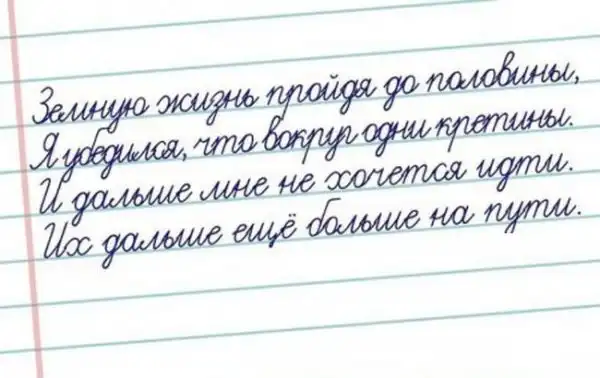 Земную жизнь пройдя до половины,
Я убедился, что вокруг одни кретины.
И дальше мне не хочется идти.
Их дальше ещё больше на пути.